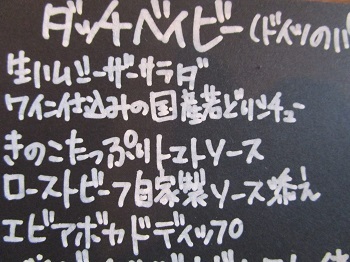 ダッチベイビー(ドイツのパ
生ハムシーザーサラダ
ワイン仕込みの国産若どりシチュー
きのこたっぷりトマトソース
ローストビーフ自家製ソース添え
エビアボカドディップ